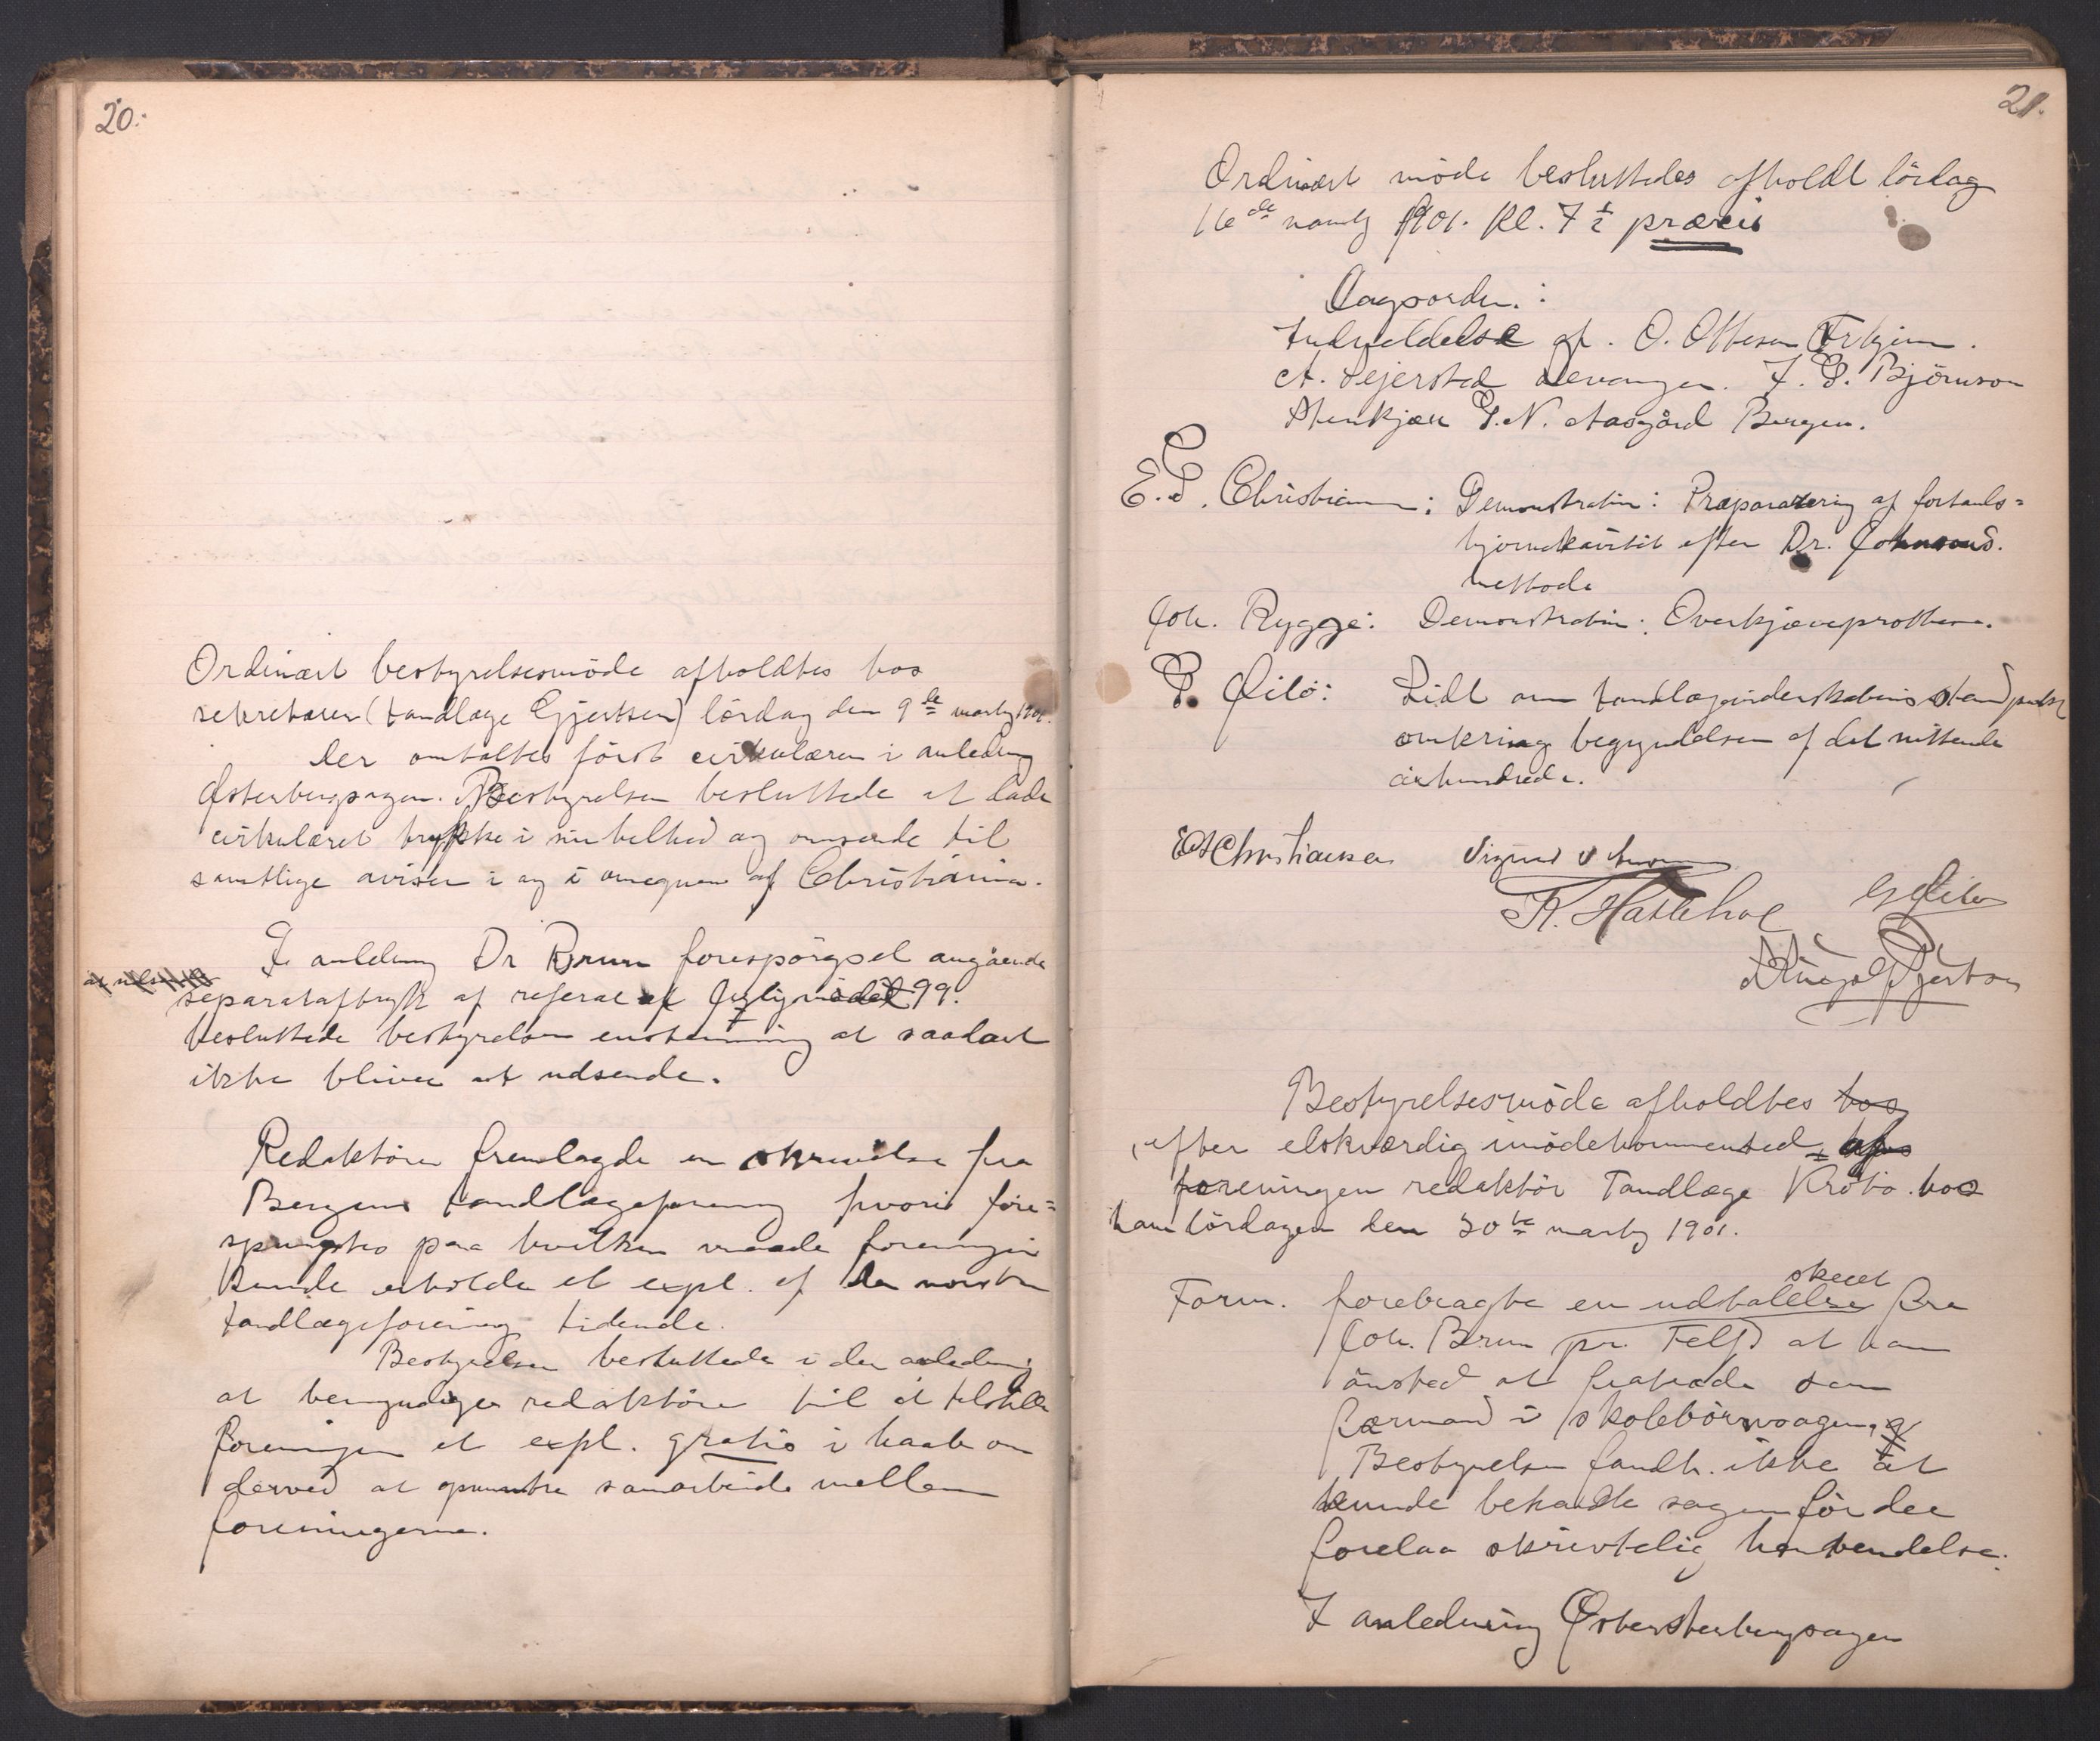 20.
Ordinært bestyrelsesmöde afholdtes hos
sekretæren (tandlæge Gjertsen) lördag den 9de marts 1901.
Der omtaltes först cirkulæren i anledning
Østerbergsagen. Bestyrelsen besluttede at lade
cirkulæret trykke i sin helhed og omsende til
samtlige aviser i og i omegnen af Christiania.
I anledning Dr Brun forespörgsel angående
separataftryk af referat af 99.
besluttede bestyrelsen enstemmig at saadant
ikke bliver at udsende.
Redaktören fremlagde en skrivelse fra
Bergens tandlægeforening hvori fore=
spurgtes paa hvilken maade foreningen
kunde erholde et expl. af den norske
tandlægeforenings tidende.
Bestyrelsen besluttede i den anledning
at bemyndige redaktören til at tilstille
foreningen et expl. gratis i haab om
derved at opmuntre samarbeide mellem
foreningerne.
21.
Ordinært möde besluttedes afholdt lördag
16de marts 1901. Kl. 7 1/2 præcis
Dagsorden:
Indmeldelse af. O. Ottesen
A. Sejersted Levanger. F. E. Björnson
Stenkjær G. N. Aasgård Bergen.
E. S. Christiansen: Demonstration: Præparering af fortands=
hjørnekavitet efter Dr. Johnsons.
methode
Joh. Rygge: Demonstration: Overkjæveprothese.
S. Qilö: Lidt om tandlægevidenskabens standpunkt
omkring begyndelsen af det nittende
århundrede.
E S Christiansen
K. Hatlehol
Gjertsen
Bestyrelsesmöde afholdtes hos
efter elskværdig imödekommenhed af
foreningen redaktör Tandlæge Krobo. hos
ham lördagen den 30te marts 1901.
Form. forebragte en udtalelse skeet fra
Joh. Brun pr. Telf at han
önsked at fratræde som
formand i skolebörnsagen, og
Bestyrelsen fandt ikke at
kunde behandle sagen för der
forelaa skrivtelig henvendelse.
I anledning Østersterbergsagen